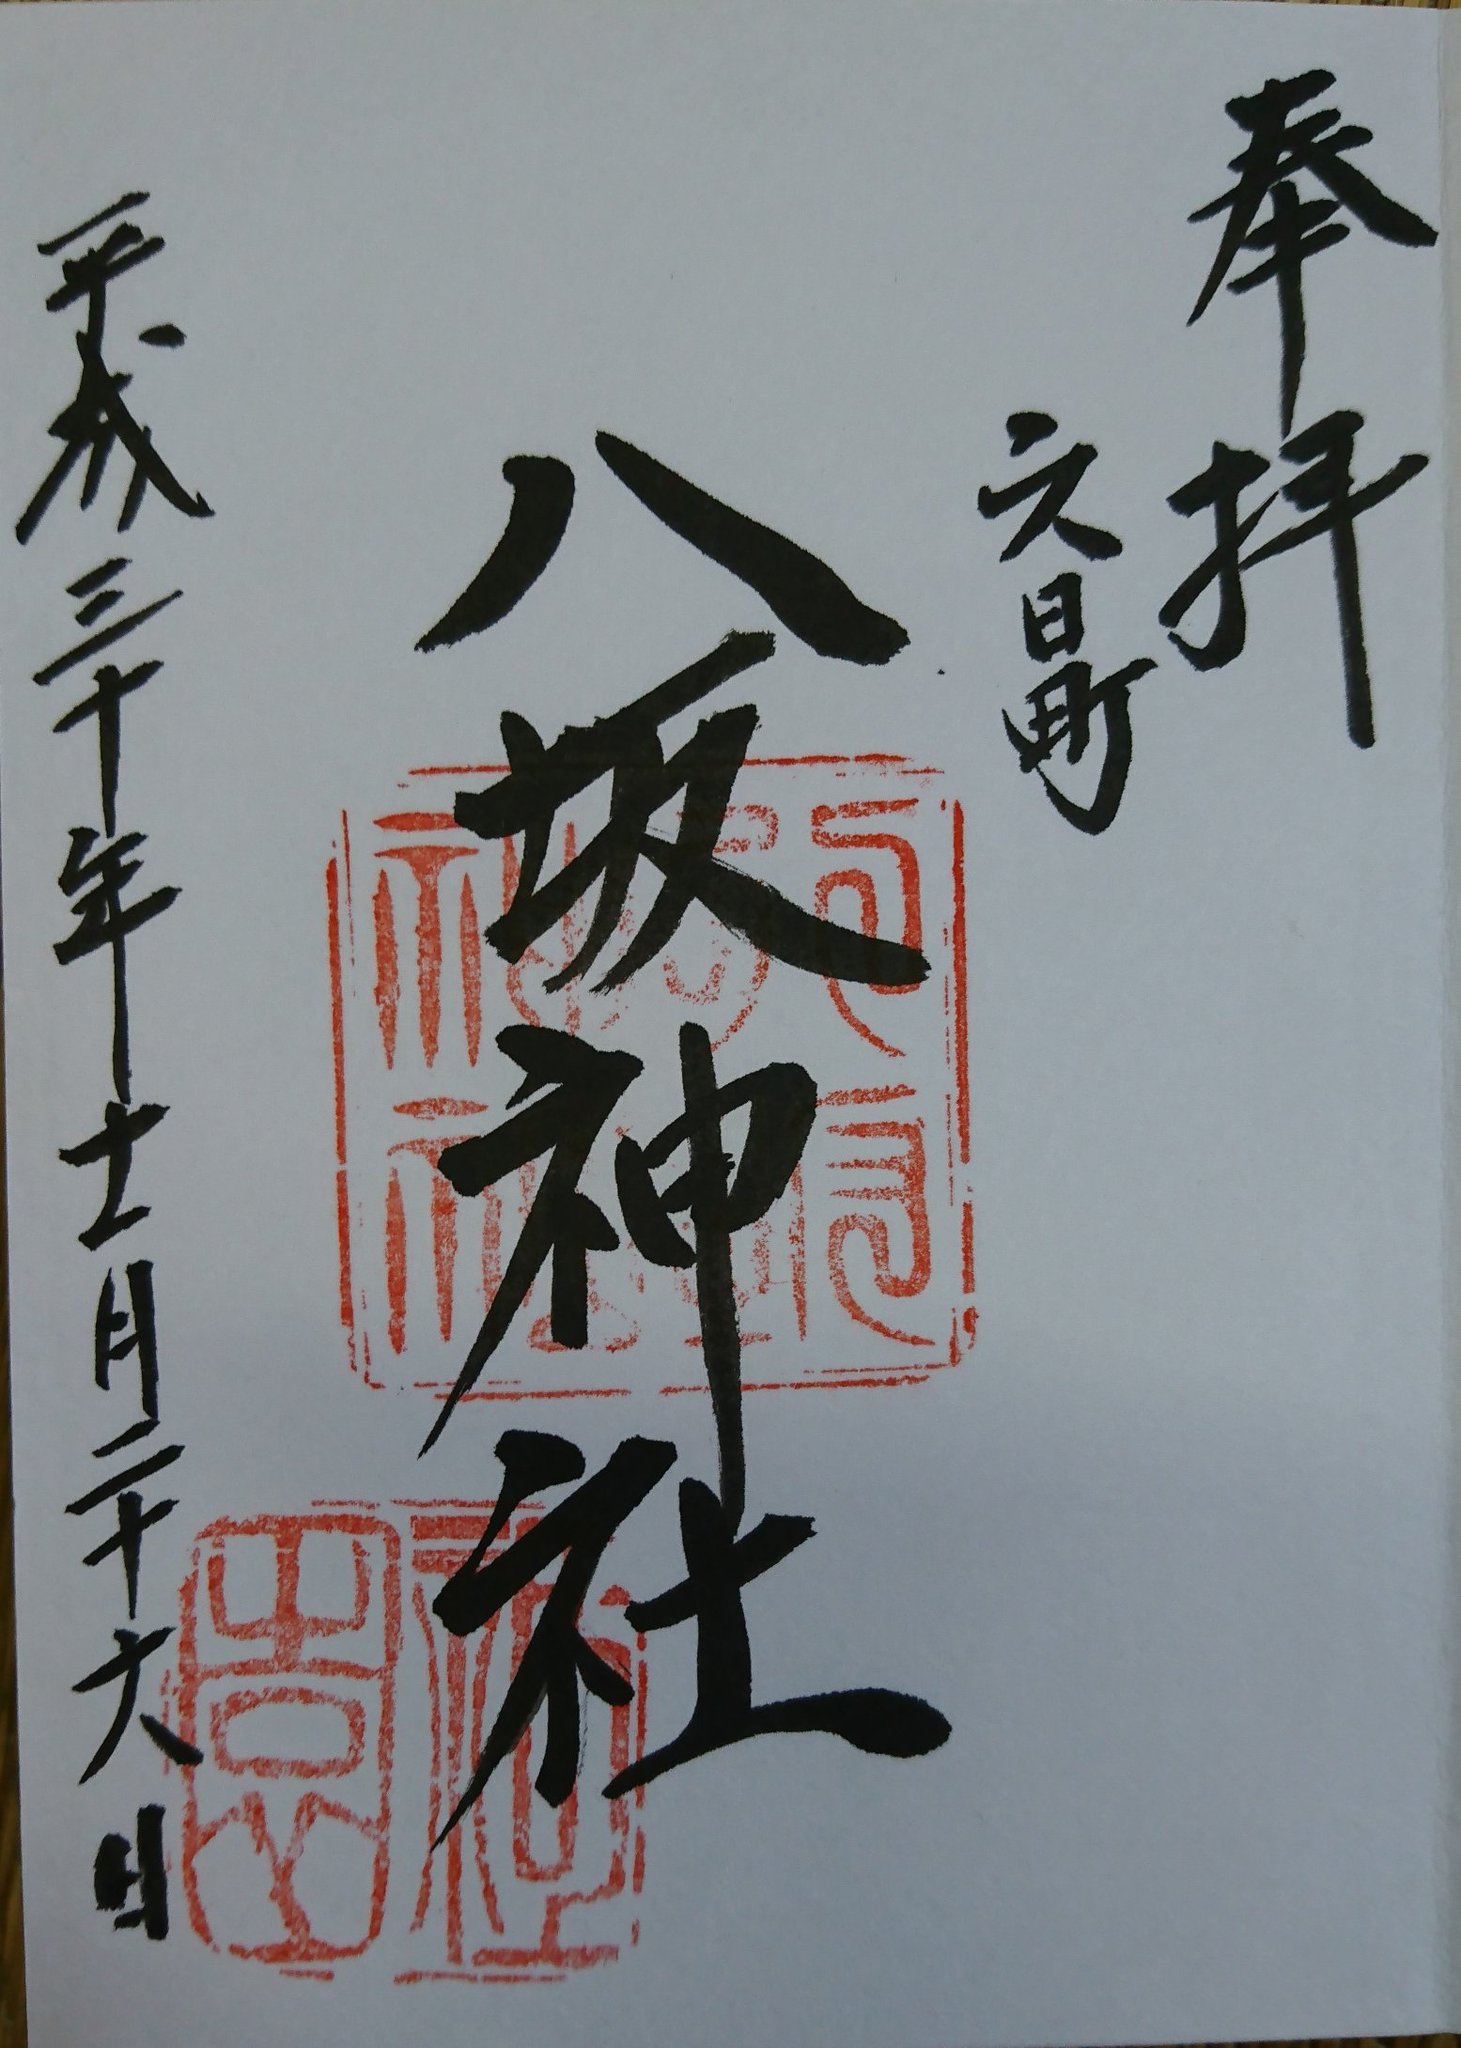 奉拝
六日町
八坂神社
平成三十年十一月二十六日